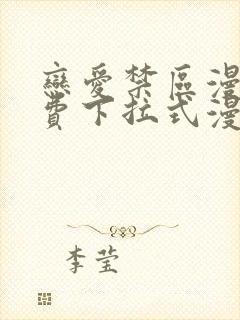 戀愛禁區漫
費下拉式漫
李莹